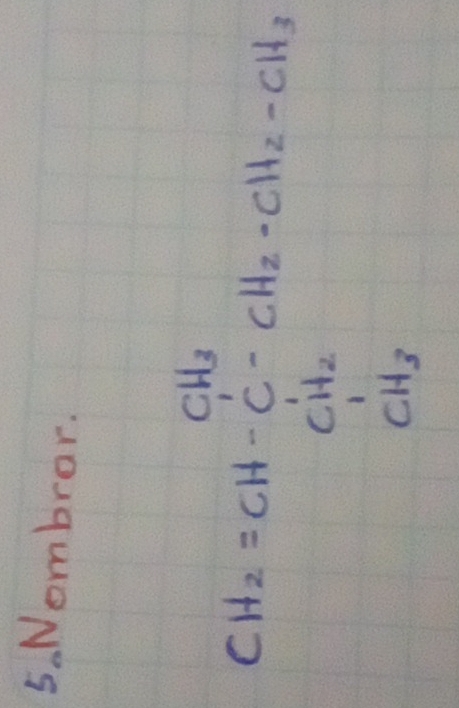 5. Nombrar.
CH₃
CH₂ = CH - C - CH₂ - CH₂ - CH₃
CH₂
CH₃